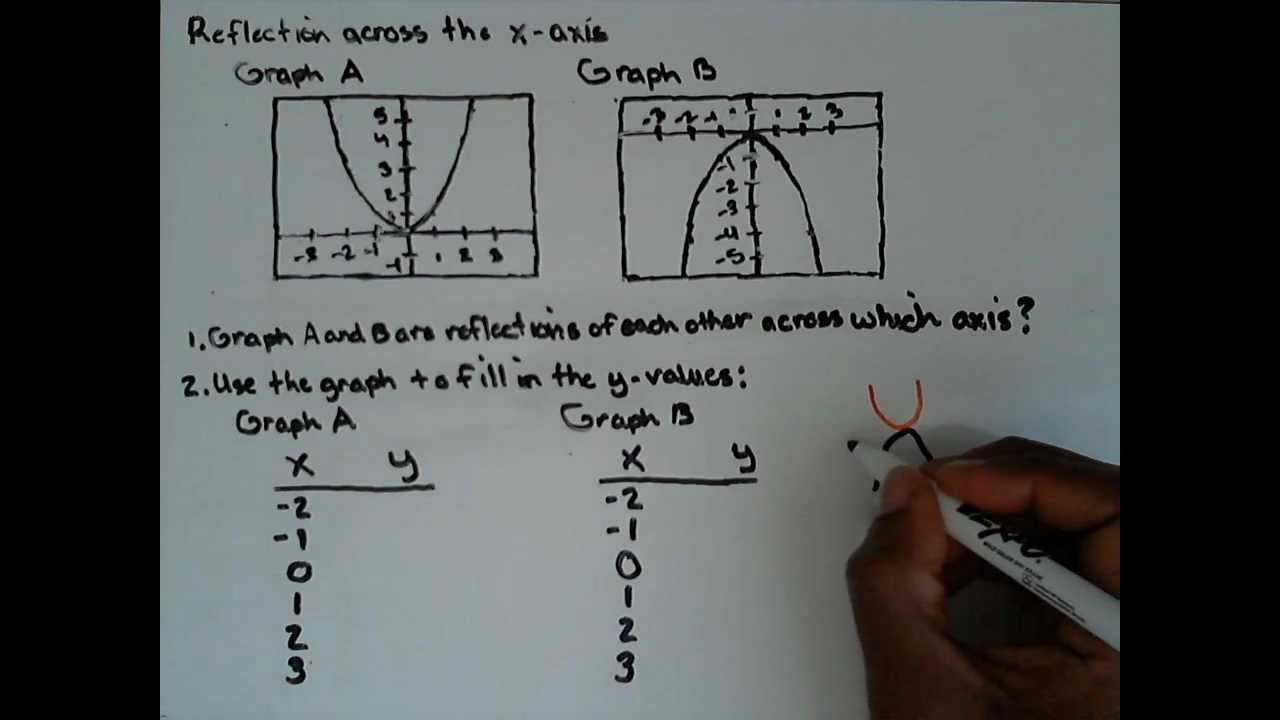 Reflection across the x-axis
Graph A Graph B
5
4
3
2
-3 -2 -1 1 2 3
-1
-3 -2 -1 1 2 3
-1
-2
-3
-4
-5
1. Graph A and B are reflections of each other across which axis?
2. Use the graph to fill in the y-values:
Graph A Graph B
x y x y
-2 -2
-1 -1
0 0
1 1
2 2
3 3
EXPO